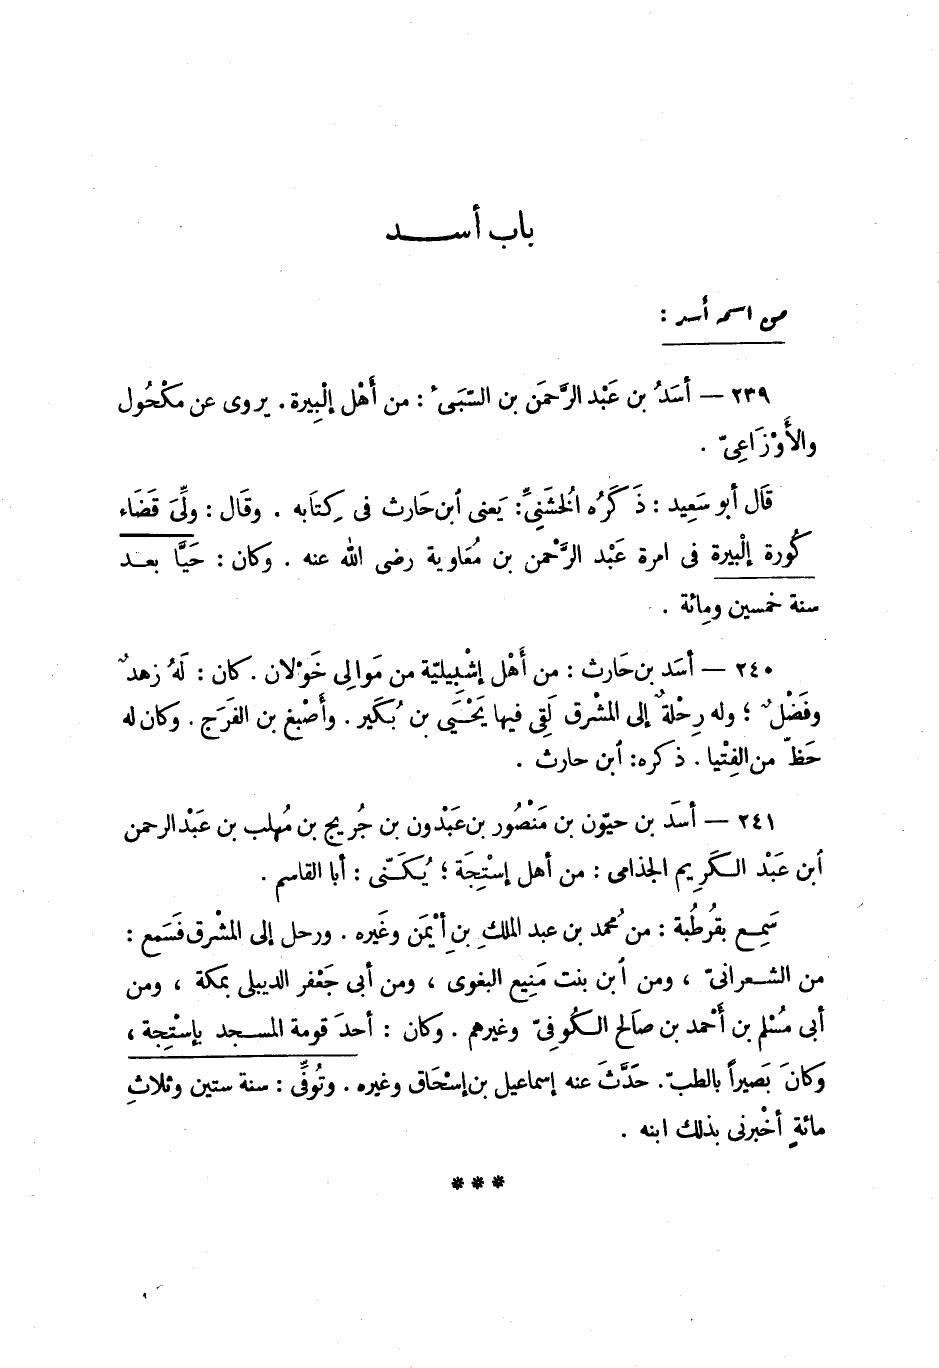 باب أســـد
من اسمه أسد :
٢٣٩ — أسَدُ بن عَبْد الرَّحمَن بن السّبَىء : من أَهْل إلْبِيرة . يروى عن مَكْحُول
والأَوْزَاعِىّ .
قَال أبو سَعِيد : ذَكَرُه الخشَنِىّ : يَعنى ٱبن حَارث فى كِتَابه . وقَال : ولِّىَ قَضَاء
كُورة إلْبيرة فى امرة عَبْد الرَّحْمن بن مُعَاوية رضى الله عنه . وكان : حَيًّا بعـد
سنة خمسين ومِائة .
٢٤٠ — أسَد بن حَارث : من أَهْل إشْبِيليّة من مَوالى خَوْلان . كان : لَهُ زهدٌ
وفَضْلٌ ؛ وله رِحْلةٌ إلى المشْرق لَقِى فيها يَحْيَى بن بُكَير . وأَصْبغ بن الفَرَج . وكان له
حَظّ من الفِتْيا . ذكره : ٱبن حارث .
٢٤١ — أسَد بن حيّون بن مَنْصُور بن عَبْدون بن جُريج بن مُهلب بن عَبْد الرحمن
ٱبن عَبْد الـكَرِيم الجذامى : من أهل إسْتِجَة ؛ يُكَـنّى : أبا القاسم .
سَمِـع بقُرطُبة : من مُحمد بن عبد الملكِ بنِ أيْمَن وغَيره . ورحل إلى المشْرق فسَمع :
من الشـعرانىّ ، ومن ٱبن بنت مَنِيع البغوى ، ومن أبى جَعْفر الديبلى بمكة ، ومن
أبى مُسْلم بن أَحْمد بن صَالح الـكُوفىّ وغيرهم . وكان : أحدَ قومة المسـجد بإسْتِجة ،
وكانَ بَصيراً بالطبّ . حَدَّثَ عنه إسماعيل بن إسْحَاق وغيره . وتُوفِّى : سنة ستين وثلاثِ
مائةٍ أخْبرنى بذلك ابنه .
* * *